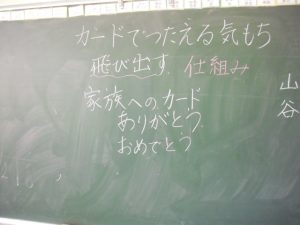 カードでつたえる気もち
飛び出す 仕組み
家族へのカード
ありがとう
おめでとう
山
谷